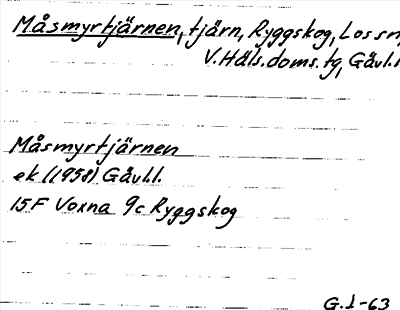 Måsmyrtjärnen, tjärn, Ryggskog, Los sn,
V. Häls. doms. tg, Gävl. l
Måsmyrtjärnen
ek (1958) Gävl. l.
15F Voxna 9c Ryggskog
G.J-63